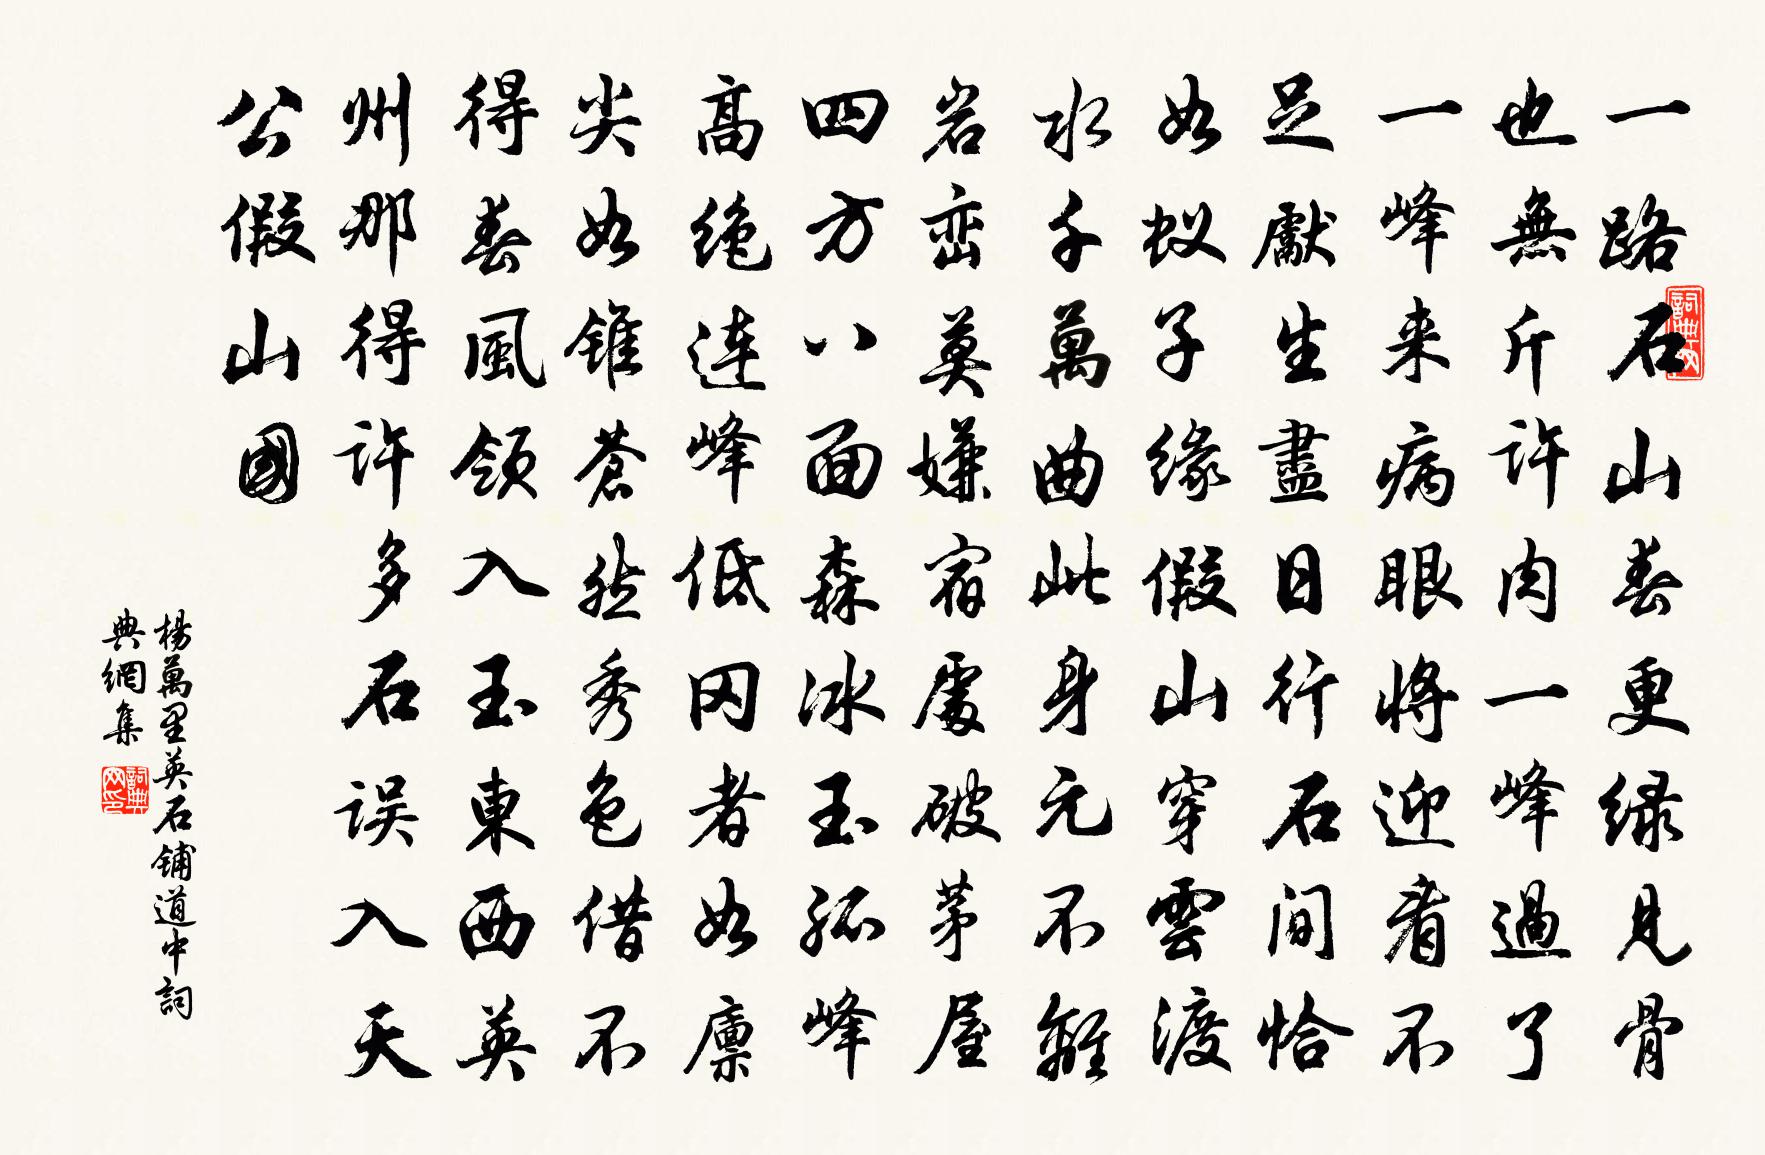 一路石山春更绿见骨
也無斤许肉一峰過了
一峰来病眼将迎看不
足獻生盡日行石间恰
如蚁子缘假山穿雲渡
水千萬曲此身元不離
岩峦莫嫌宿處破茅屋
四方八面森冰玉孤峰
高绝连峰低冈者如廪
尖如锥苍然秀色借不
得春風领入玉東西英
州那得许多石误入天
公假山國
楊萬里英石铺道中詞
典網集
詞典网
詞典网印